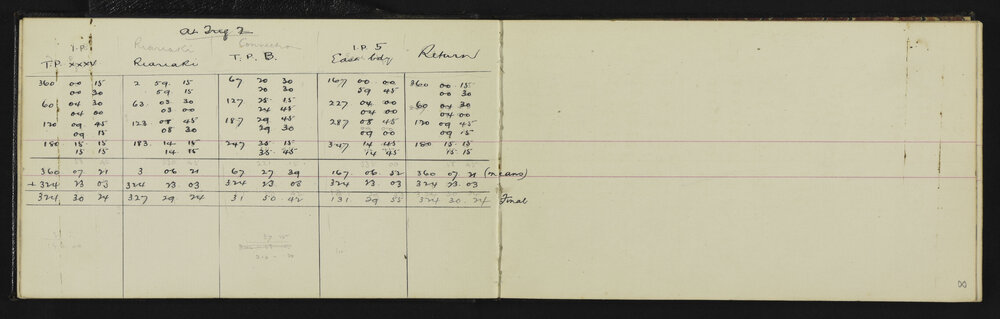 at Trig Z
I.P. Riariaki Connection I.P. 5
T.P. XXXV Riariaki T.P. B. East bdy Return
360 00 15 2 59 15 67 20 30 167 00 00 360 00 15
00 30 59 15 20 30 59 45 00 30
60 04 30 63 03 30 127 25 15 227 04 00 60 04 30
04 00 03 00 24 45 04 00 04 00
120 09 45 123 08 45 187 29 45 287 08 45 120 09 45
09 15 08 30 29 30 09 00 09 15
180 15 15 183 14 15 247 35 15 347 14 45 180 15 15
15 15 14 15 35 45 14 45 15 15
360 07 21 3 06 21 67 27 39 167 06 52 360 07 21 (means)
+ 324 23 03 324 23 03 324 23 03 324 23 03 324 23 03
324 30 24 327 29 24 31 50 42 131 29 55 324 30 24 Final